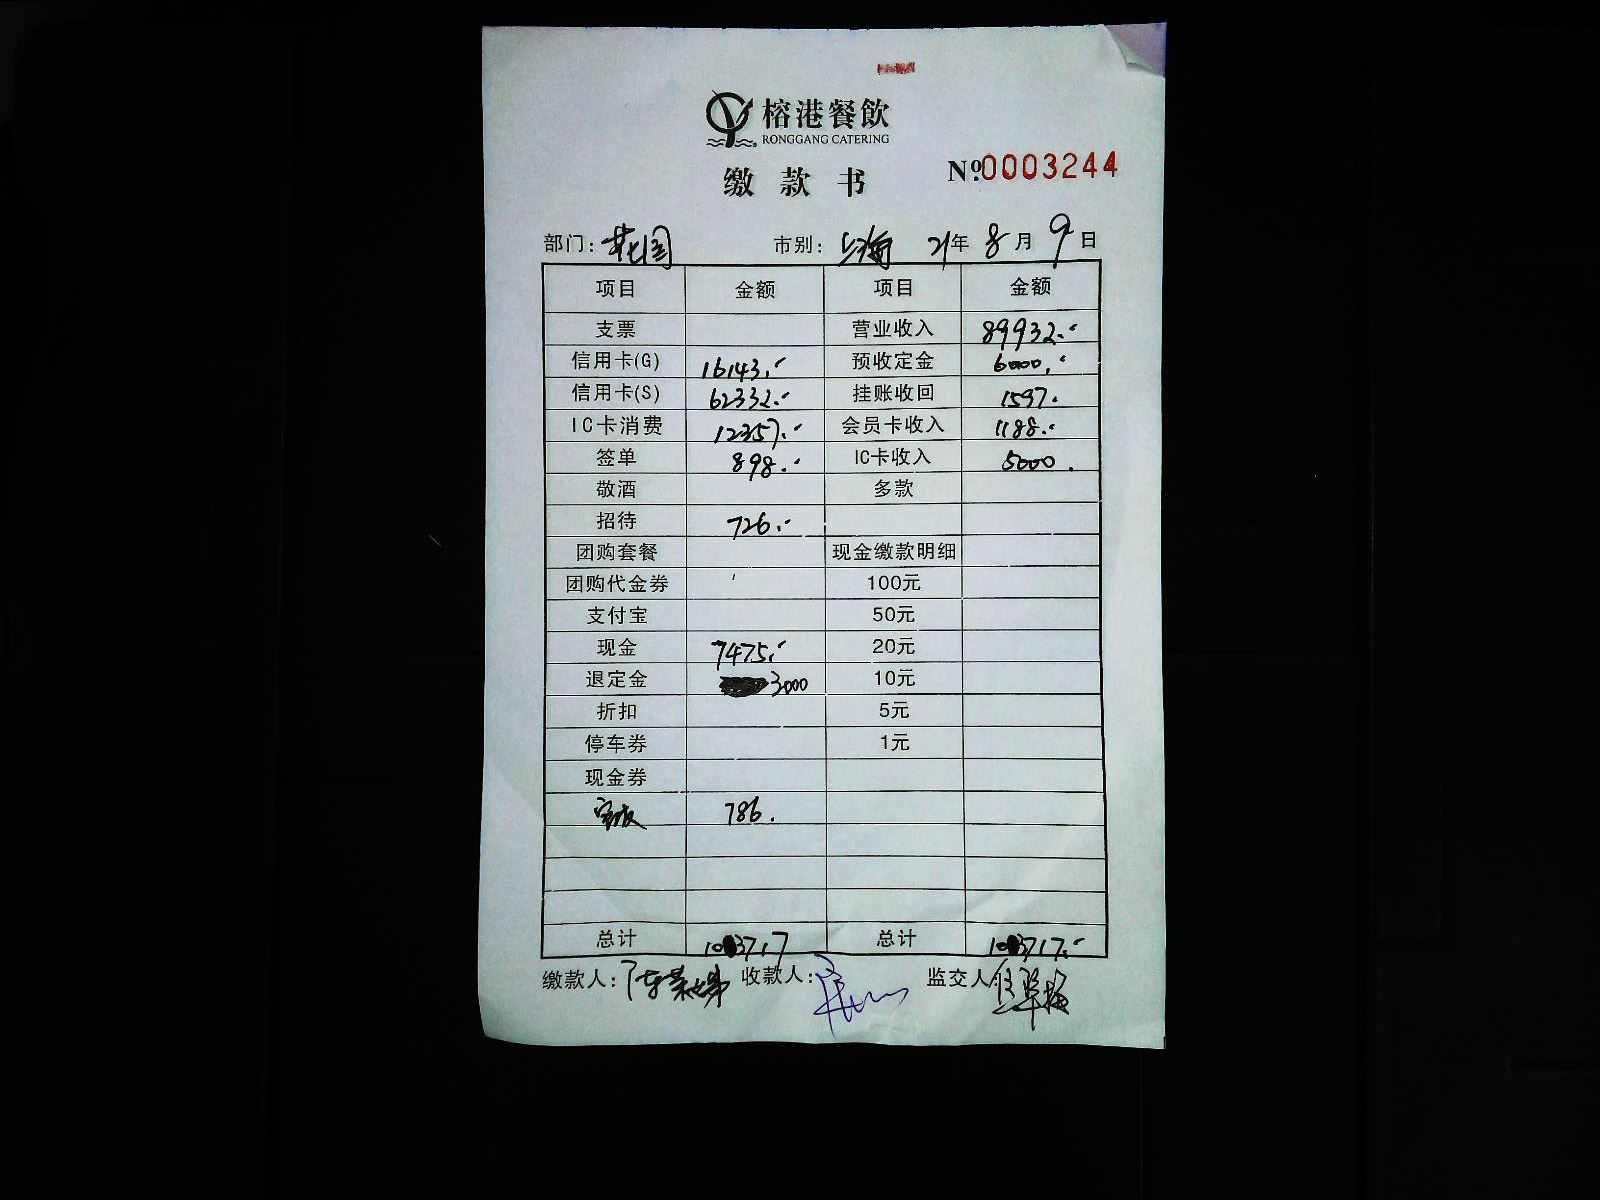 榕港餐飲
RONGGANG CATERING
缴款书
Nº0003244
部门：花园 市别：上海 21年8月9日
项目 金额 项目 金额
支票 营业收入 89932.-
信用卡(G) 16143.- 预收定金 6000.-
信用卡(S) 62332.- 挂账收回 1597.
IC卡消费 12357.- 会员卡收入 1188.-
签单 898.- IC卡收入 5000.
敬酒 多款
招待 726.-
团购套餐 现金缴款明细
团购代金券 100元
支付宝 50元
现金 7475.- 20元
退定金 3000 10元
折扣 5元
停车券 1元
现金券
786.
总计 103717 总计 103717.-
缴款人： 收款人： 监交人：